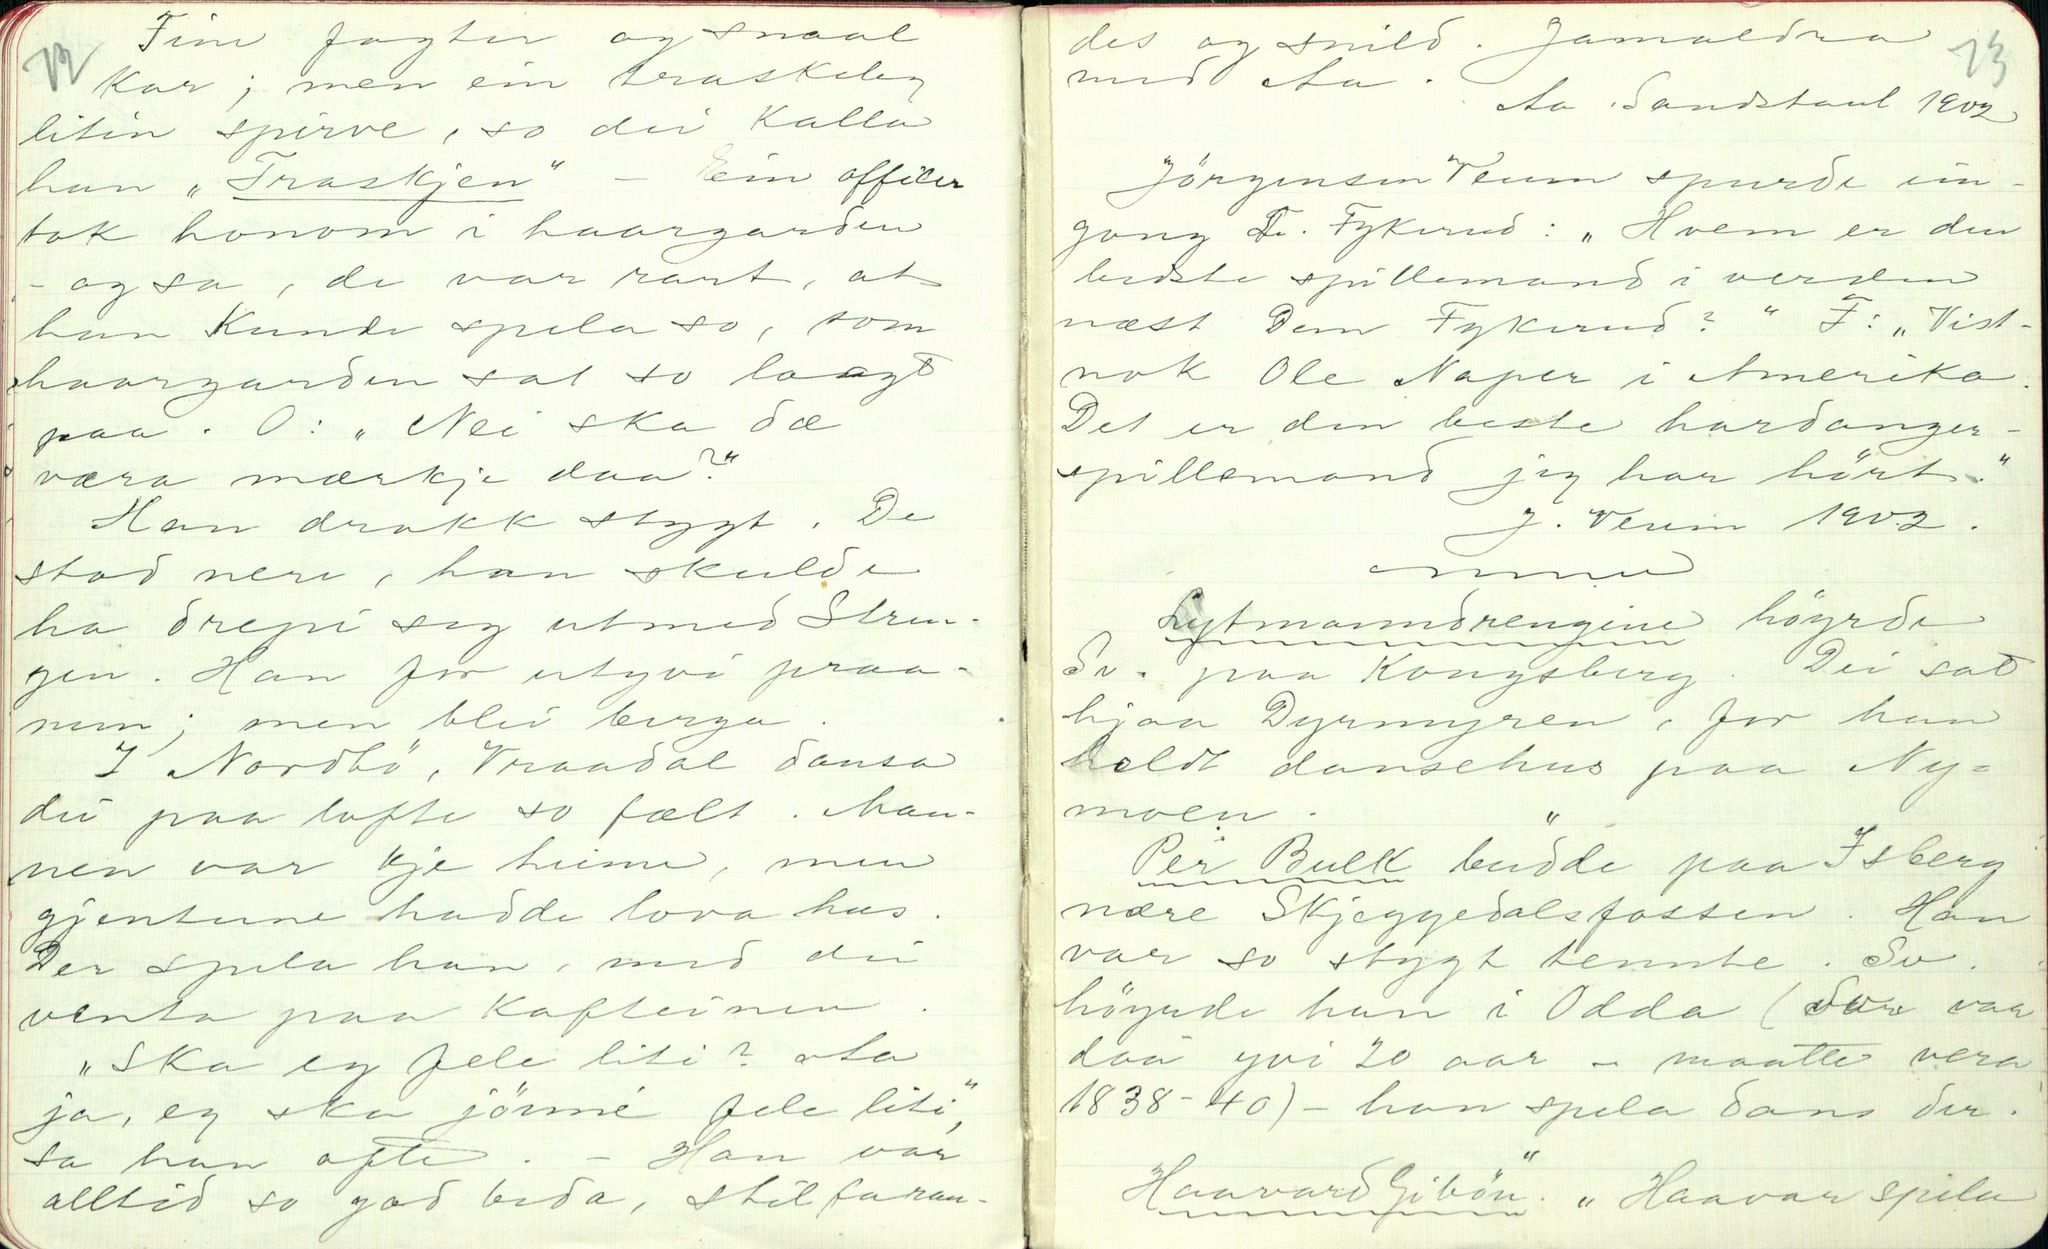 72
Fine fagter og snaal
kar; men ein traskeleg
litin spirve, so dei kalla
han „Traskjen" – Ein officer
tok honom i haargarden
– og sa, de var rart, at
han kunde spela so, som
haargarden sat so laagt
paa. O: „Nei ska dæ
væra mærkje daa?"
Han drakk stygt. De
stod nere, han skulde
ha drepi seg utmed Stren-
gen. Han for utyvi praa-
men; men blei berga.
I Nordbö, Vraadal dansa
dei paa lofte so fælt. Man-
nen var kje heime, men
gjentune hadde lova hus.
Der spela han, med dei
venta paa kafteinen.
„Ska eg fele liti? Aa
ja, eg ska jönne fele liti",
sa han ofte. – Han var
alltid so god beda, stilfaran-
73
des og snild. Jamaldra
med Aa.
Aa. Sandstaul 1902
Jörgensen Veum spurde ein-
gong L. Fykerud: „Hvem er den
bedste spillemand i verden
næst Dem Fykerud?" F: „Vist-
nok Ole Naper i Amerika.
Det er den beste hardanger-
spillemand jeg har hört."
J. Veum 1902.
Lytmanndrengine höyrde
Sv. paa Kongsberg. Dei sat
hjaa Dyrmyren, for han
heldt dansehus paa Ny-
moen.
"
Per Bulk budde paa Isberg
nære Skjeggedalsfossen. Han
var so stygt tennte. Sv.
höyrde han i Odda (Sv. var
daa yvi 20 aar – maatte vera
1838-40) – han spela dans der.
"
Haavard Gibön. „Haavar spela